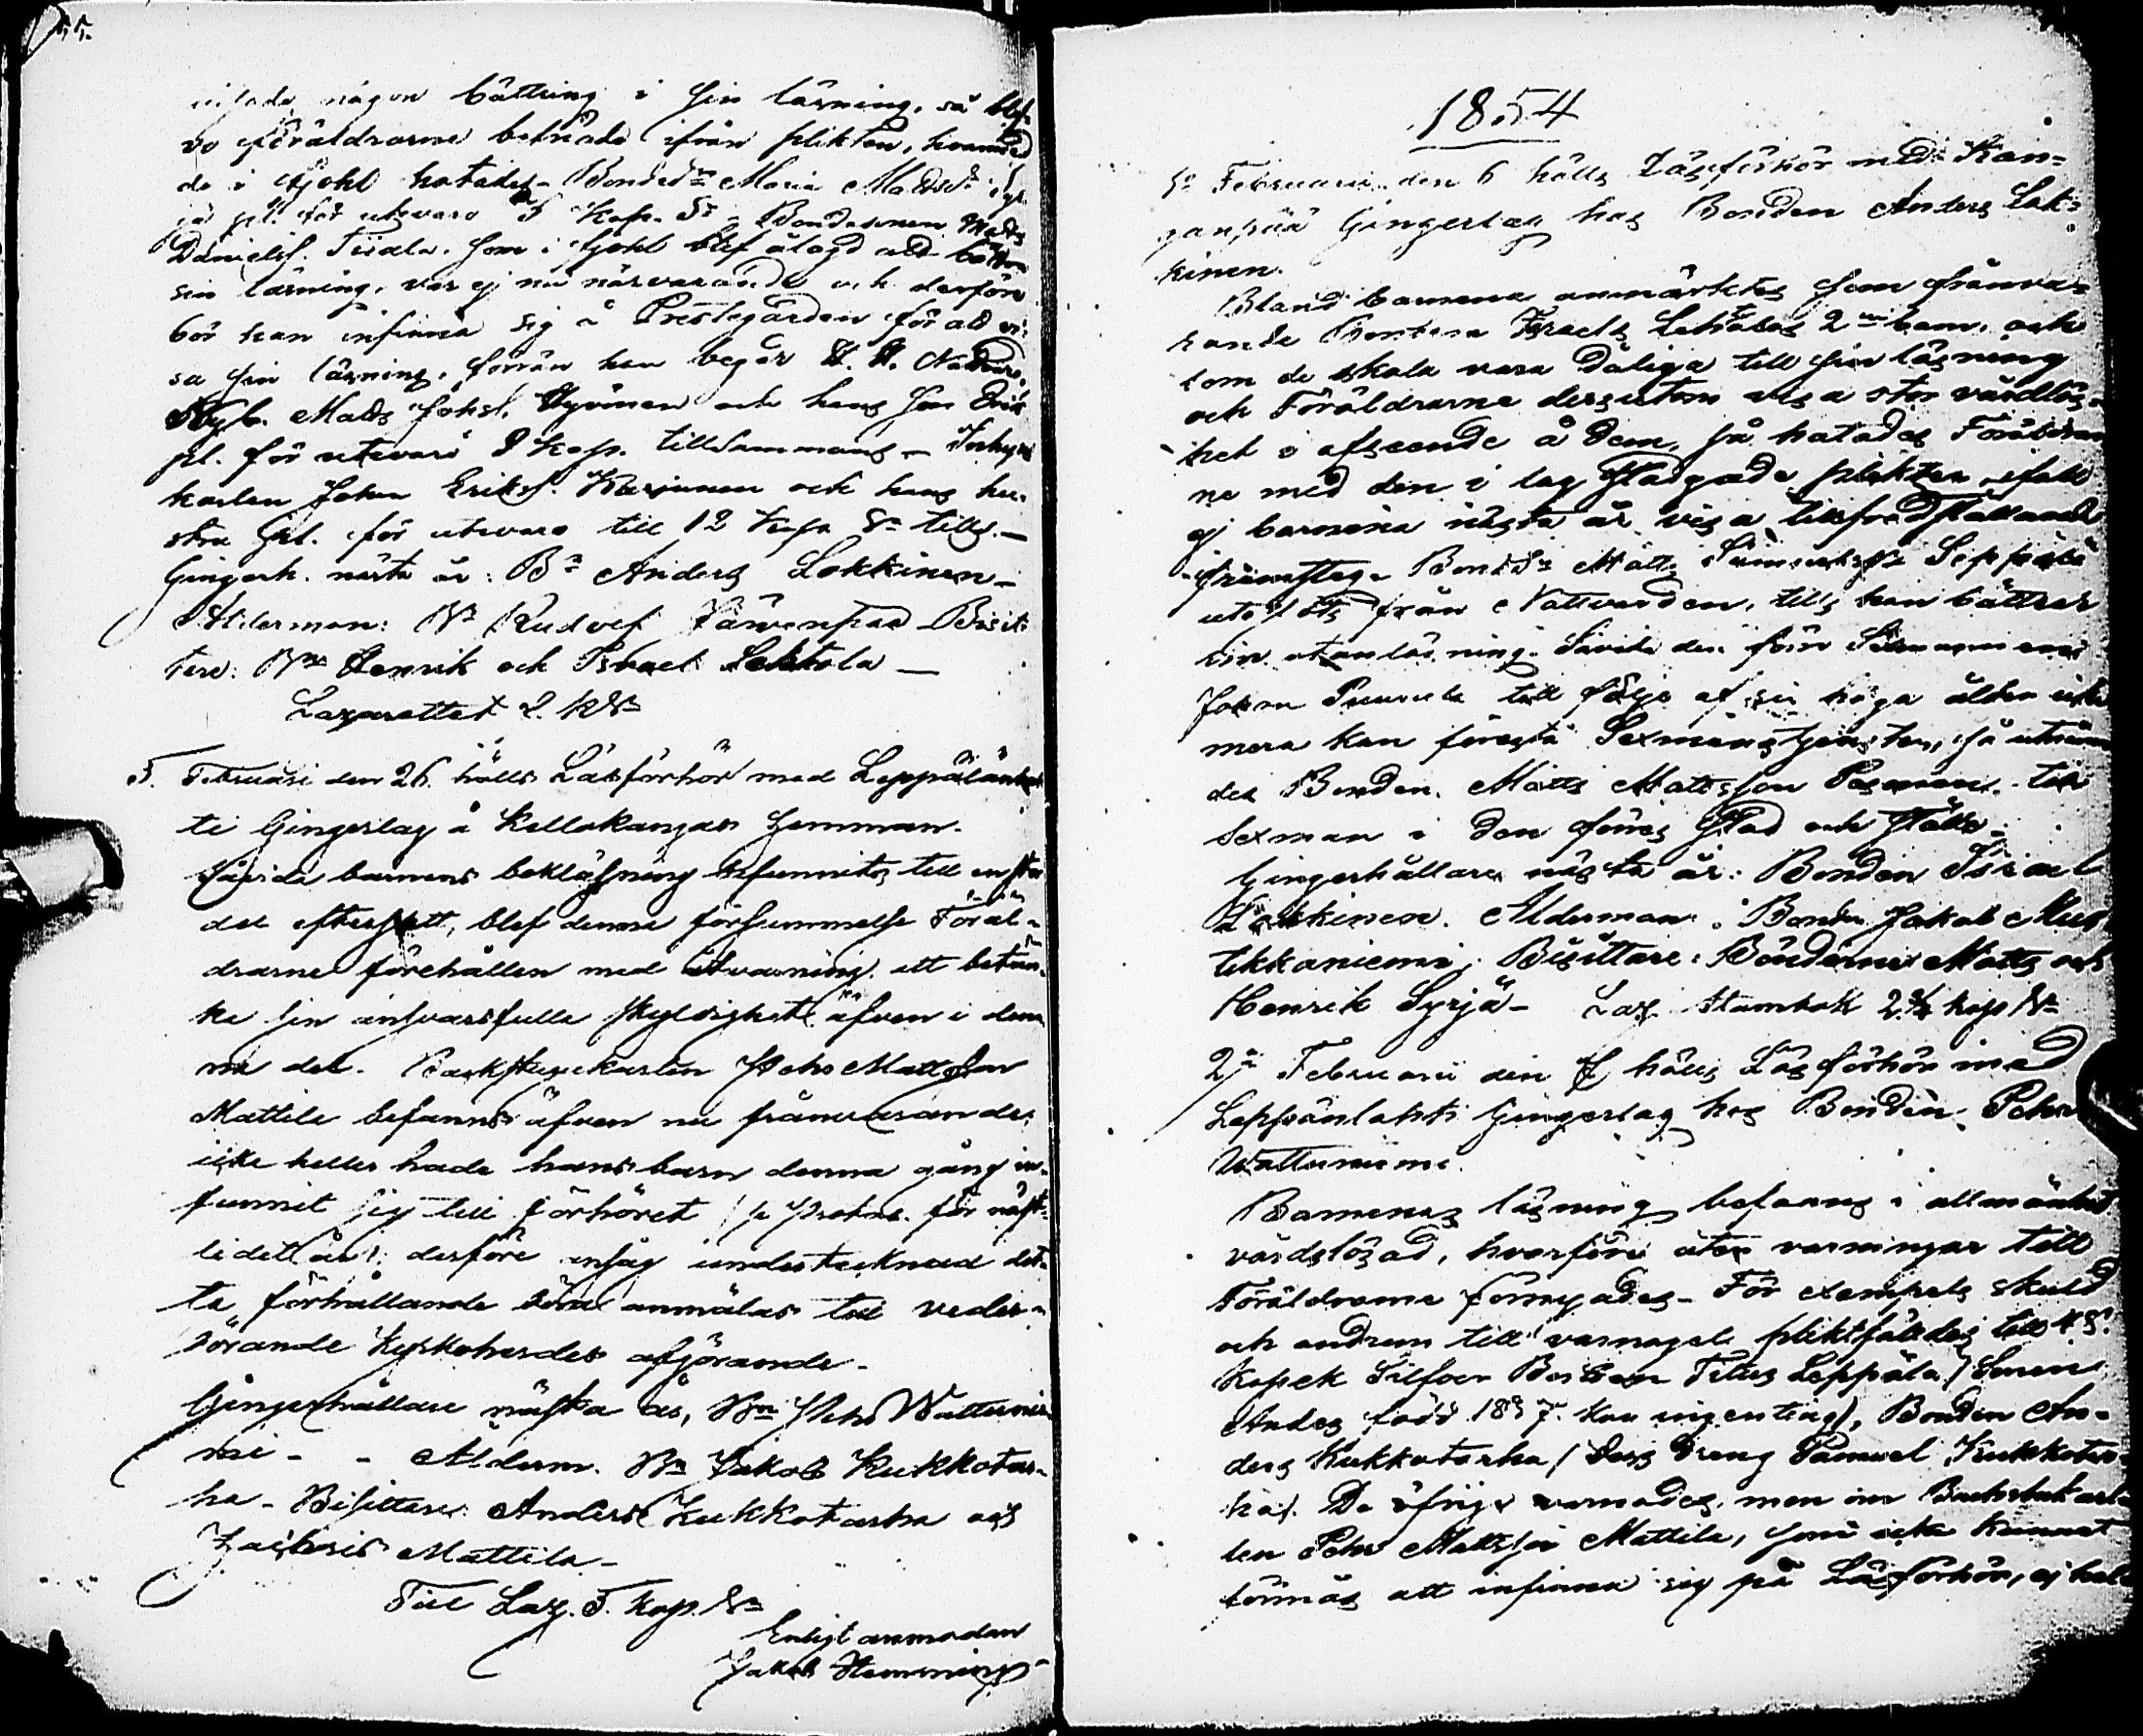 55.
någon bättring i sin läsning, så blef-
vo föräldrarne befriade ifrån plikten, hvarmed
de i fjohl hotades. Bondedn Maria Matsdr Syr-
jä pl. för utevaro 5 Kop. Sr - Bondesonen Mats
Danielss. Tiiala, som i fjohl blef ålagd att bättra
sin läsning, var ej nu närvarande och derföre
bör han infinna sig å Prestegården för att vi-
sa sin läsning, förrän han begår H. H. Nattvard.
Nyb. Mats Johss. Hyvönen och hans son Erik
pl. för utevaro 8 Kop. tillsammans - Inhyses
karlen Johan Erikss. Karjunen och hans hu-
stru pl. för utevaro till 12 Kop Sr tills. -
Gingerh. nästa år: Bn Anders Lokkinen -
Ålderman: Bn Rudolf Järvenpää - Bisit-
tare: Bne Henrik och Israel Lehtola -
Lazarettet 2. k Sr
3. Februari den 26. hölls Läsförhör med Leppälänkan-
ti Gingerlag å Kellokangas hemman.
Såvida barnens beklagning befunnits till en stor
del eftersatt, blef denna försummelse Föräl-
drarne förehållen med åtvarning att betän-
ka sin ansvarsfulla skyldighet äfven i den-
na del. Backstugukarlen Pehr Mattsson
Mattila befanns äfven nu frånvarande;
icke heller hade hans barn denna gång in-
funnit sig till förhöret (se Protoc. för näst-
lidet år); derföre ansåg undertecknad det-
ta förhållande böra anmälas till veder-
börande Kyrkoherdes afgörande.
Gingerhållare nästa år, Bn Pehr Wattunie-
mi - - Ålderm. Bn Jakob Kukkotar-
ha - Bisittare: Anders Kukkotarha och
Zachris Mattila -
Till Laz. 5. kop. Sr
Enligt anmodan
Jakob Hemming
1854
1o Februarii den 6 hölls Läsförhör med Kan-
ganpää Gingerlag hos Bonden Anders Lok-
kinen.
Bland barnena anmärktes som frånva-
rande Bonden Israels Lehtolas 2ne barn, och
som de skola vara dåliga till sin läsning
och Föräldrarne dessutom visa stor vårdlös-
het i afseende å dem, så hotades Föräldrar-
ne med den i lag stadgade plikten, ifall
ej barnena nästa år visa tillfredsställande
framsteg. Bondsn Matts Samuelssn Seppälä
uteslöts från Nattvarden, tills han bättrar
sin utanläsning. Såvida den förre Sexmannen
Johan Puurula till följe af sin höga ålder icke
mera kan förestå Sexmanstjensten, så utnäm-
des Bonden Matts Mattsson Pasanen till
Sexman i den förres stad och ställe.
Gingerhållare nästa år: Bonden Israel
Lokkinen. Ålderman: Bonden Jakob Mus-
tikkaniemi; Bisittare: Bönderne Matts och
Henrik Syrjä - Laz. Stambok 2 3/4 kop Sr
2o Februarii den 7 hölls Läsförhör med
Leppänlahti Gingerlag hos Bonden Pehr
Wattuniemi.
Barnenas läsning befanns i allmänhet
vårdslösad, hvarföre åter varningar till
Föräldrarne förnyades - För exempels skuld
och androm till varnagel pliktfälldes till 48
Kopek Silfver Bonden Titus Leppälä (Sonen
Anders född 1837. kan ingenting), Bonden An-
ders Kukkotarha (dess Dreng Samuel Kukkotar-
ha). De öfrige varnades, men om Backstukar-
len Pehr Mattsson Mattila, som icke kunnat
förmås att infinna sig på Läsförhör, ej hel-